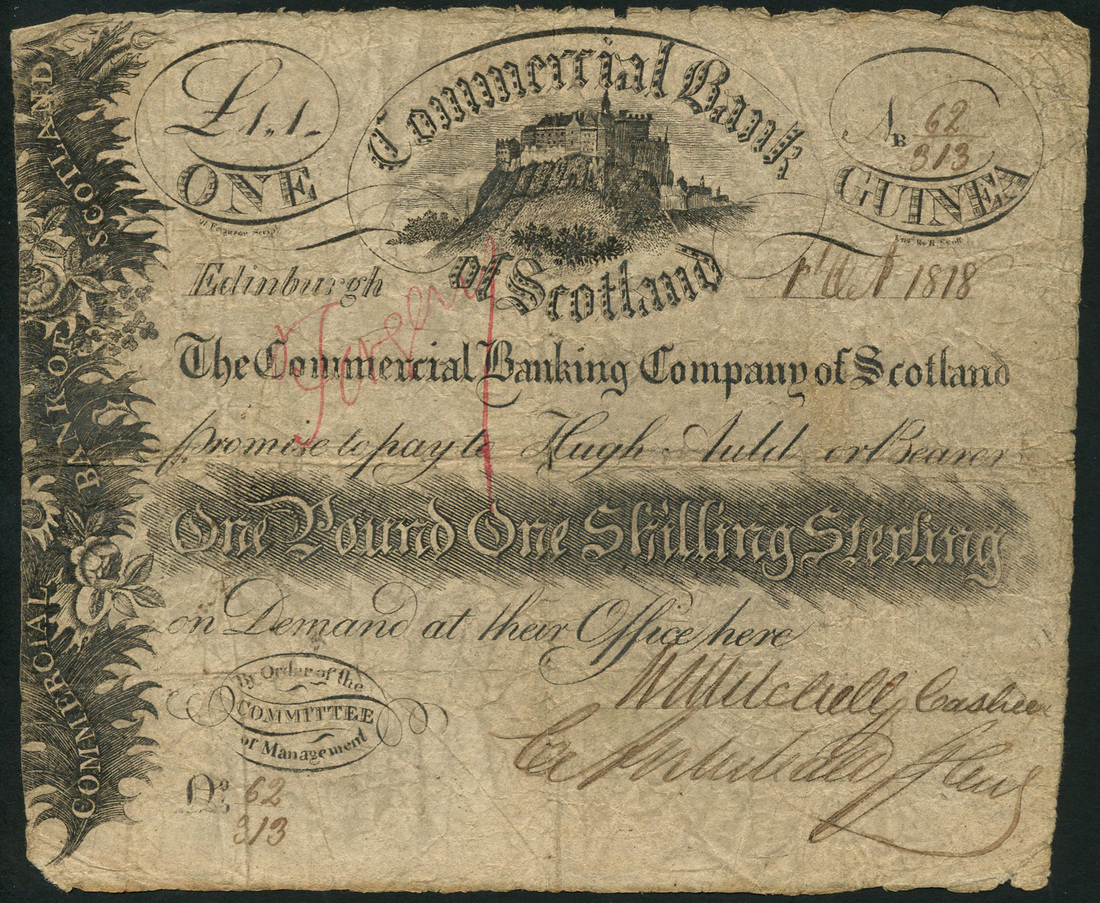 COMMERCIAL BANK OF SCOTLAND
£1,,1,,
ONE
Commercial Bank
of Scotland
No
B
62
313
GUINEA
Edinburgh
1st Oct 1818
Forgery
The Commercial Banking Company of Scotland
promise to pay to Hugh Auld or Bearer
One Pound One Shilling Sterling
on Demand at their Office here
By Order of the
COMMITTEE
of Management
Mitchell Cashier
No
62
313